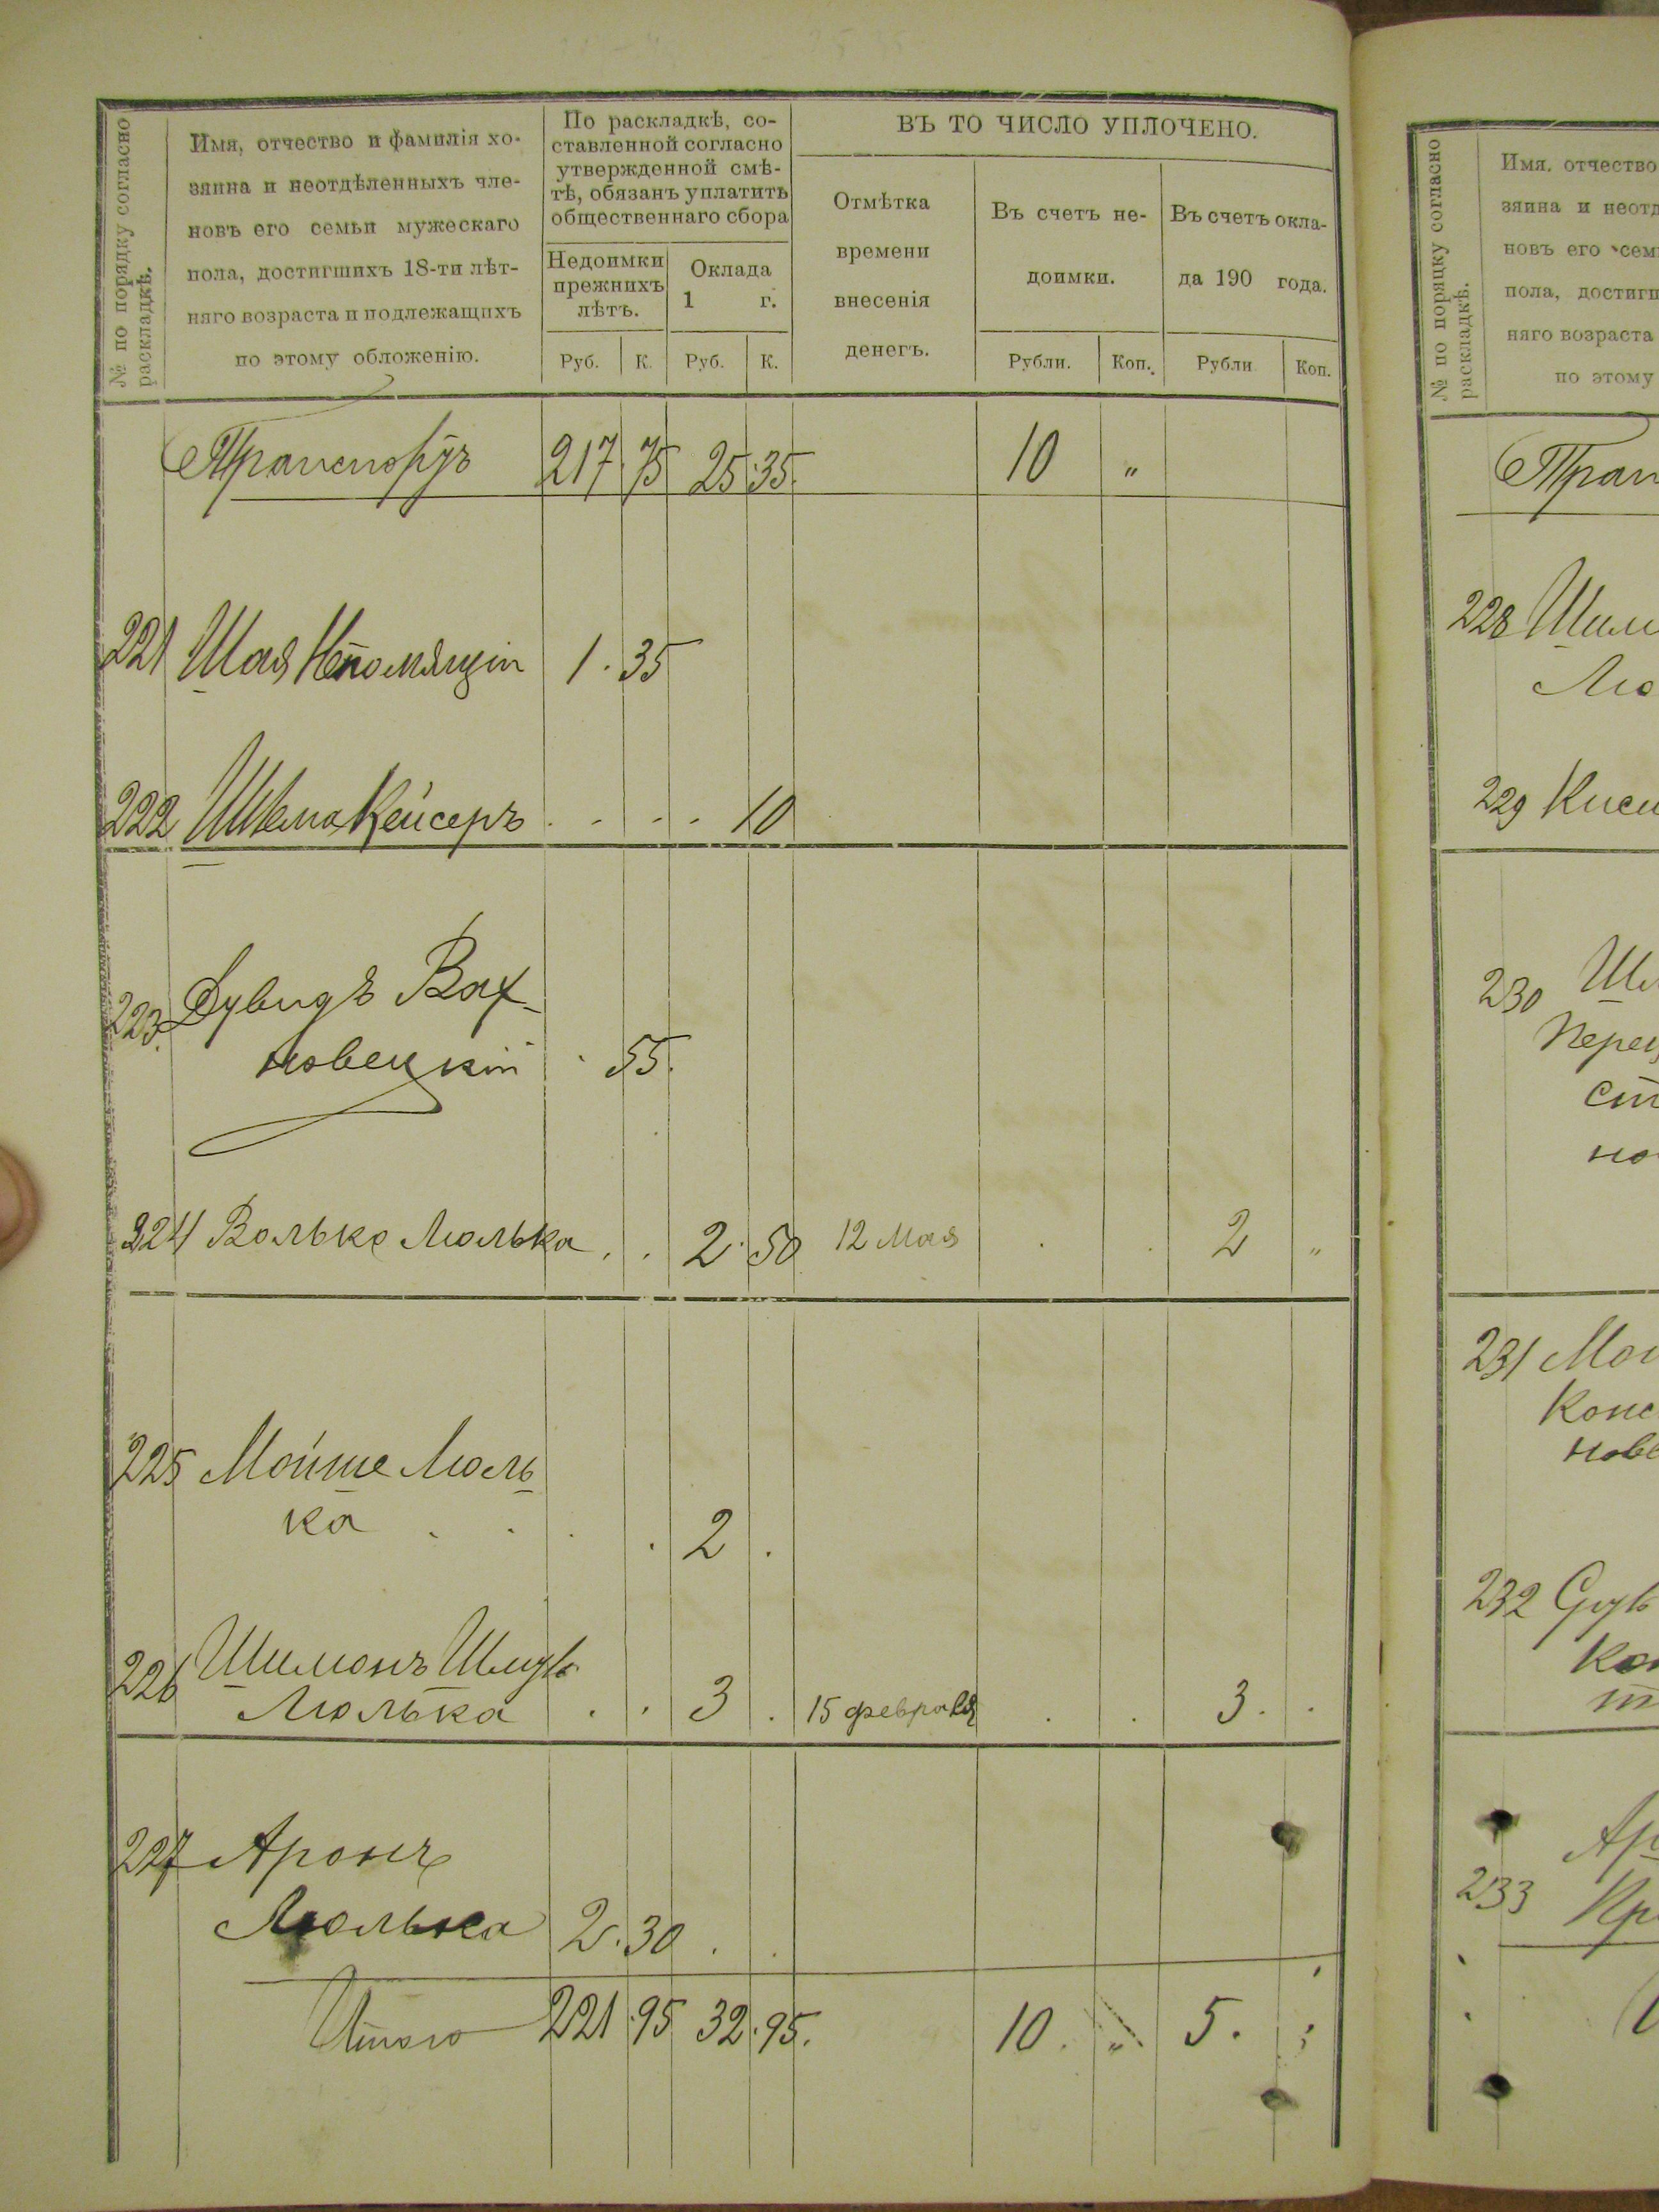 № по порядку согласно
раскладкѣ.
Имя, отчество и фамилія хо-
зяина и неотдѣленныхъ чле-
новъ его семьи мужескаго
пола, достигшихъ 18-ти лѣт-
няго возраста и подлежащихъ
по этому обложенію.
По раскладкѣ, со-
ставленной согласно
утвержденной смѣ-
тѣ, обязанъ уплатить
общественнаго сбора
Недоимки
прежнихъ
лѣтъ.
Оклада
1 г.
Руб. К. Руб. К.
ВЪ ТО ЧИСЛО УПЛОЧЕНО.
Отмѣтка
времени
внесенія
денегъ.
Въ счетъ не-
доимки.
Въ счетъ окла-
да 190 года.
Рубли. Коп. Рубли Коп.
Транспортъ 217. 75 25. 35. 10 "
221 Шая 1. 35
222 Кейсеръ . . . . 10
223. Дувидъ Вах-
новецкій . 55.
224 Волько Люлька . . 2. 50 12 Мая . . 2 "
225 Мойше Люль-
ка . . . . 2 .
226 Шимонъ
Люлька . . 3 . 15 февраля . . 3. .
227 Аронъ
Люлька 2. 30 . .
Итого 221. 95 32. 95. 10. " 5.
№ по порядку согласно
раскладкѣ.
Имя. отчество
зяина и неотд
новъ его сем
пола, достигш
няго возраста
по этому
Тран
228 Шим
Лю
229
230
Перец
ст
но
231 Мой
Конс
нов
232
Кон
233 Ар
Кр